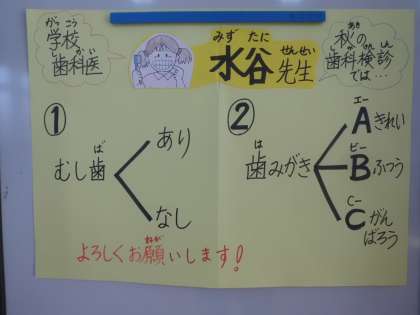 がっこう
学校
しかい
歯科医
みず たに
水谷
せんせい
先生
あき
秋の
しかけんしん
歯科検診
では…
①
ば
むし歯
あり
なし
②
は
歯みがき
エー
Aきれい
ビー
Bふつう
シー
Cがん
ばろう
ねが
よろしくお願いします!